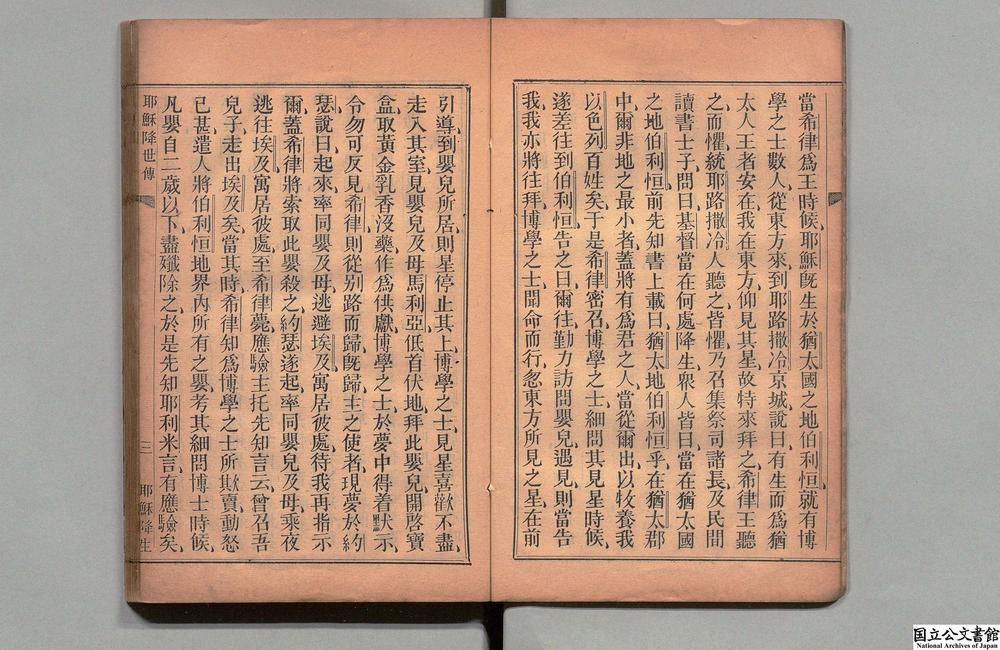 當希律爲王時候、耶穌旣生於猶太國之地伯利恒、就有博
學之士數人、從東方來、到耶路撒冷京城、說曰、有生而爲猶
太人王者安在、我在東方、仰見其星、故特來拜之、希律王聽
之而懼、統耶路撒冷人聽之、皆懼、乃召集祭司諸長、及民間
讀書士子、問曰、基督當在何處降生、衆人皆曰、當在猶太國
之地伯利恒、前先知書上載曰、猶太地伯利恒乎、在猶太郡
中、爾非地之最小者、蓋將有爲君之人、當從爾出、以牧養我
以色列百姓矣、于是希律密召博學之士、細問其見星時候、
遂差往到伯利恒、告之曰、爾往勤力訪問嬰兒、遇見則當告
我、我亦將往拜、博學之士、聞命而行、忽東方所見之星、在前
引導、到嬰兒所居、則星停止其上、博學之士、見星喜歡不盡、
走入其室、見嬰兒及母馬利亞、低首伏地、拜此嬰兒、開啓寶
盒、取黃金乳香沒藥、作爲供獻、博學之士、於夢中得着默示、
令勿可反見希律、則從別路而歸、旣歸、主之使者、現夢於約
瑟、說曰、起來、率同嬰及母、逃避埃及、寓居彼處、待我再指示
爾、蓋希律將索取此嬰殺之、約瑟遂起、率同嬰兒及母、乘夜
逃往埃及、寓居彼處、至希律薨、應驗主托先知言云、曾召吾
兒子、走出埃及矣、當其時、希律知爲博學之士所欺賣、動怒
已甚、遣人將伯利恒地界內所有之嬰、考其細問博士時候、
凡嬰自二歲以下、盡殲除之、於是先知耶利米言、有應驗矣、
耶穌降世傳
三
耶穌降生
国立公文書館
National Archives of Japan